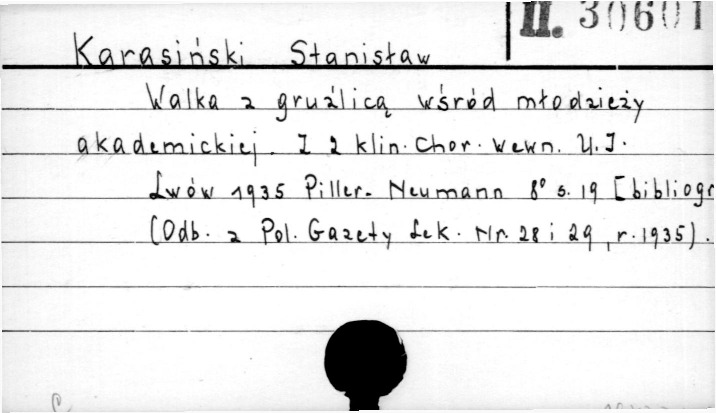 II. 30601
Karasiński Stanisław
Walka z gruźlicą wśród młodzieży
akademickiej. I z klin. chor. wewn. U.J.
Lwów 1935 Piller-Neumann 8° s. 19 [bibliogr
(Odb. z Pol. Gazety Lek. Nr. 28 i 29, r. 1935).